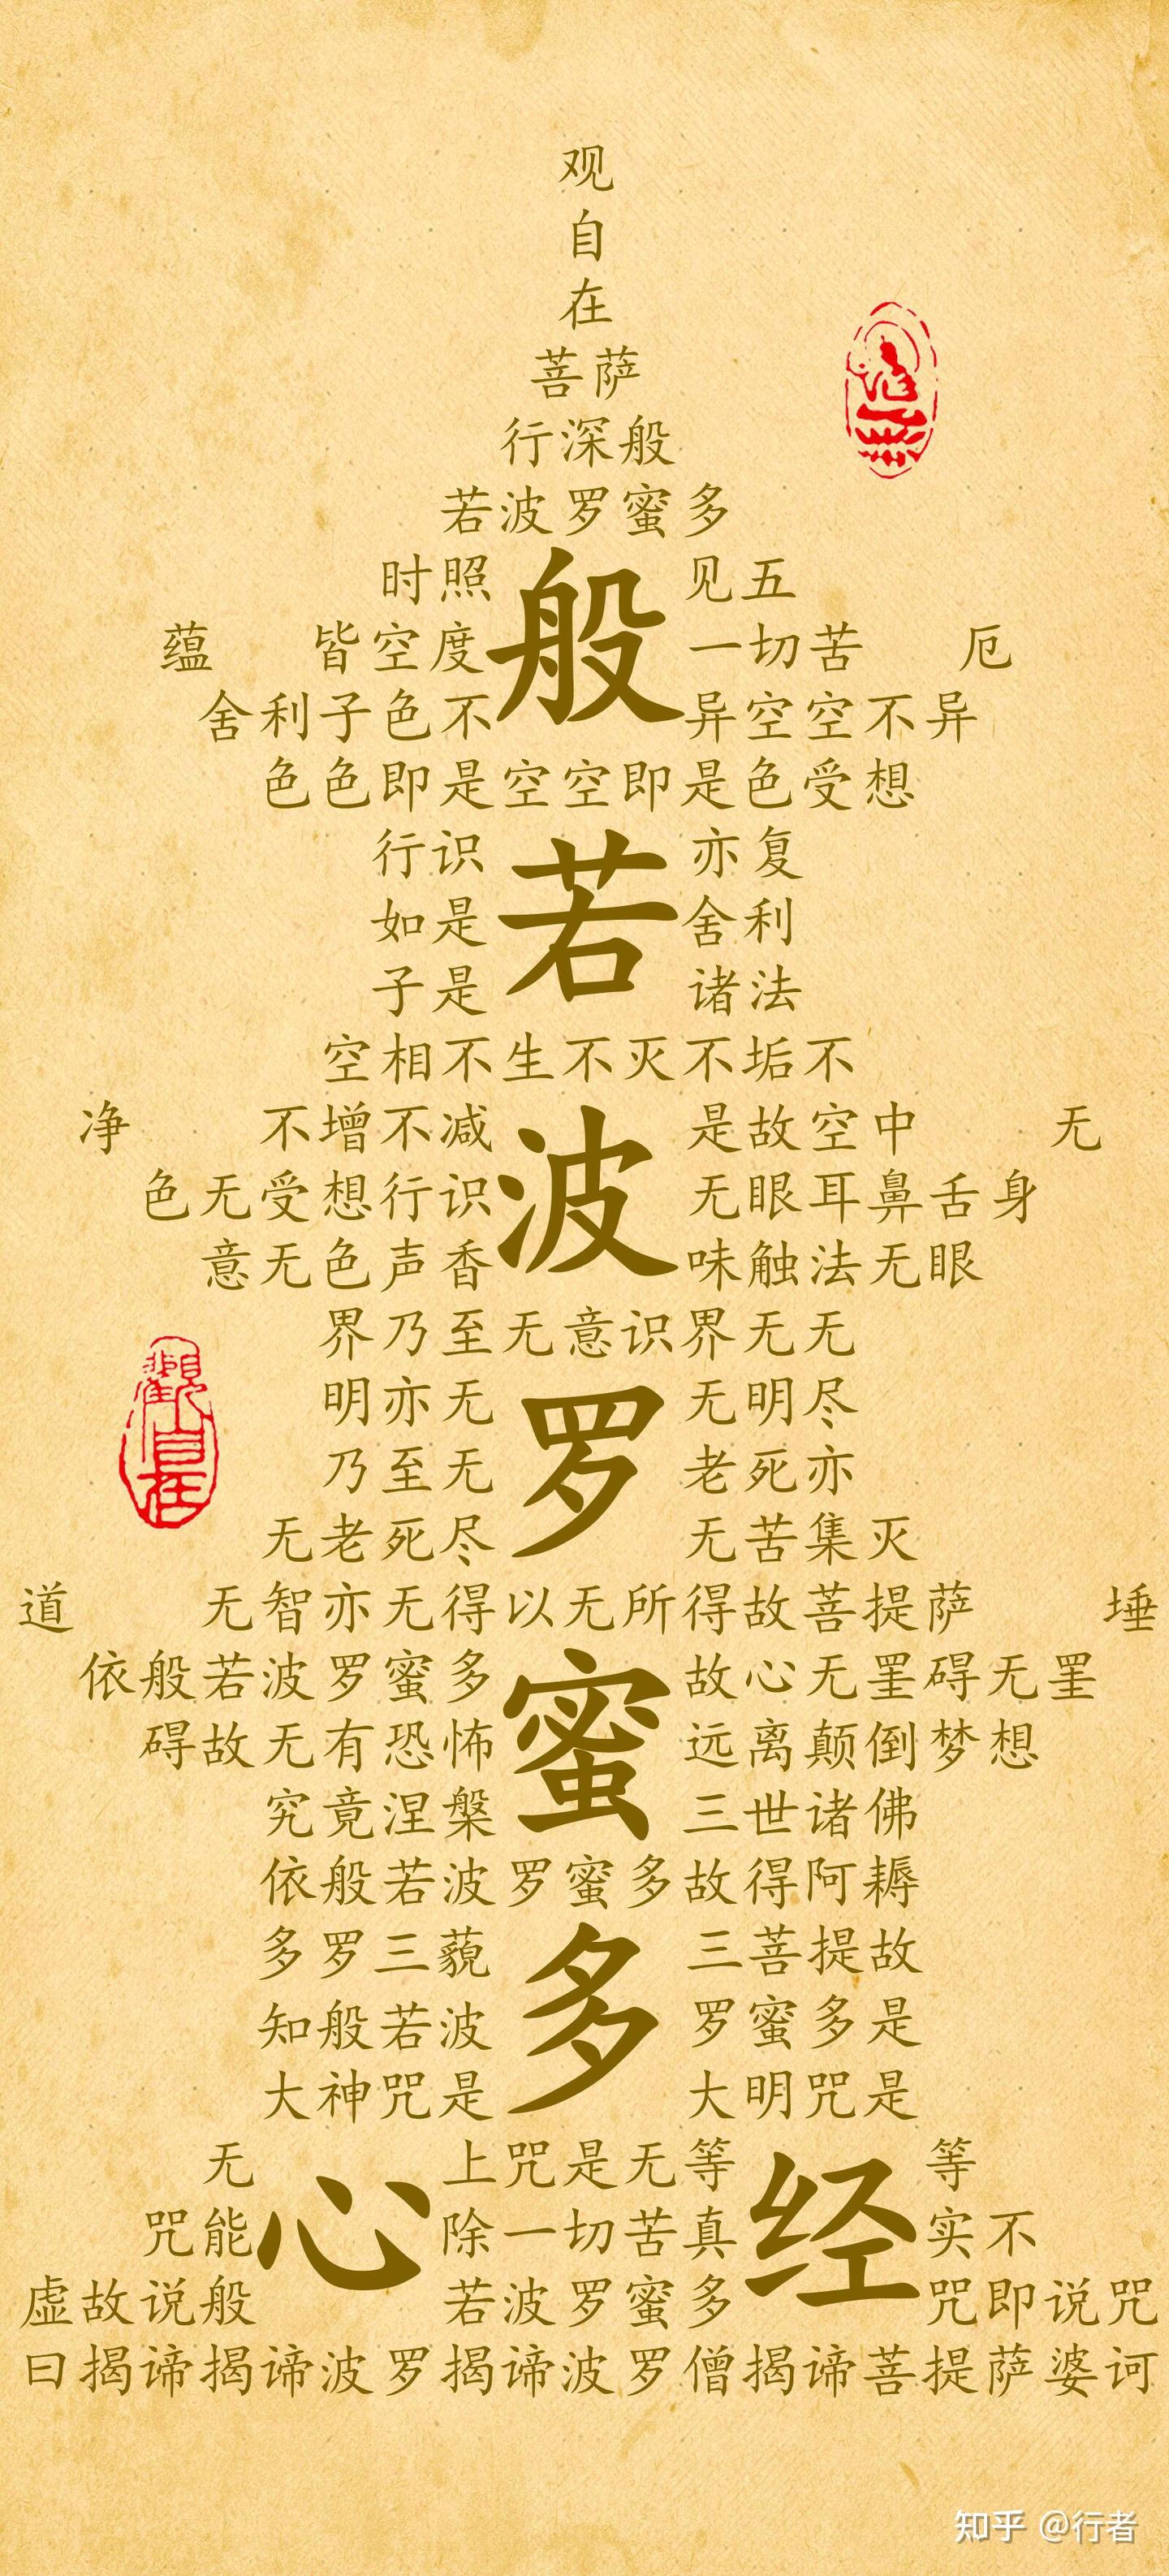 观
自
在
菩萨
行深般
若波罗蜜多
时照 见五
蕴 皆空度 一切苦 厄
舍利子色不 异空空不异
色色即是空空即是色受想
行识 亦复
如是 舍利
子是 诸法
空相不生不灭不垢不
净 不增不减 是故空中 无
色无受想行识 无眼耳鼻舌身
意无色声香 味触法无眼
界乃至无意识界无无
明亦无 无明尽
乃至无 老死亦
无老死尽 无苦集灭
道 无智亦无得以无所得故菩提萨 埵
依般若波罗蜜多 故心无罣碍无罣
碍故无有恐怖 远离颠倒梦想
究竟涅槃 三世诸佛
依般若波罗蜜多故得阿耨
多罗三藐 三菩提故
知般若波 罗蜜多是
大神咒是 大明咒是
无 上咒是无等 等
咒能 除一切苦真 实不
虚故说般 若波罗蜜多 咒即说咒
曰揭谛揭谛波罗揭谛波罗僧揭谛菩提萨婆诃
般
若
波
罗
蜜
多
心 经
觀
自
在
知乎 @行者